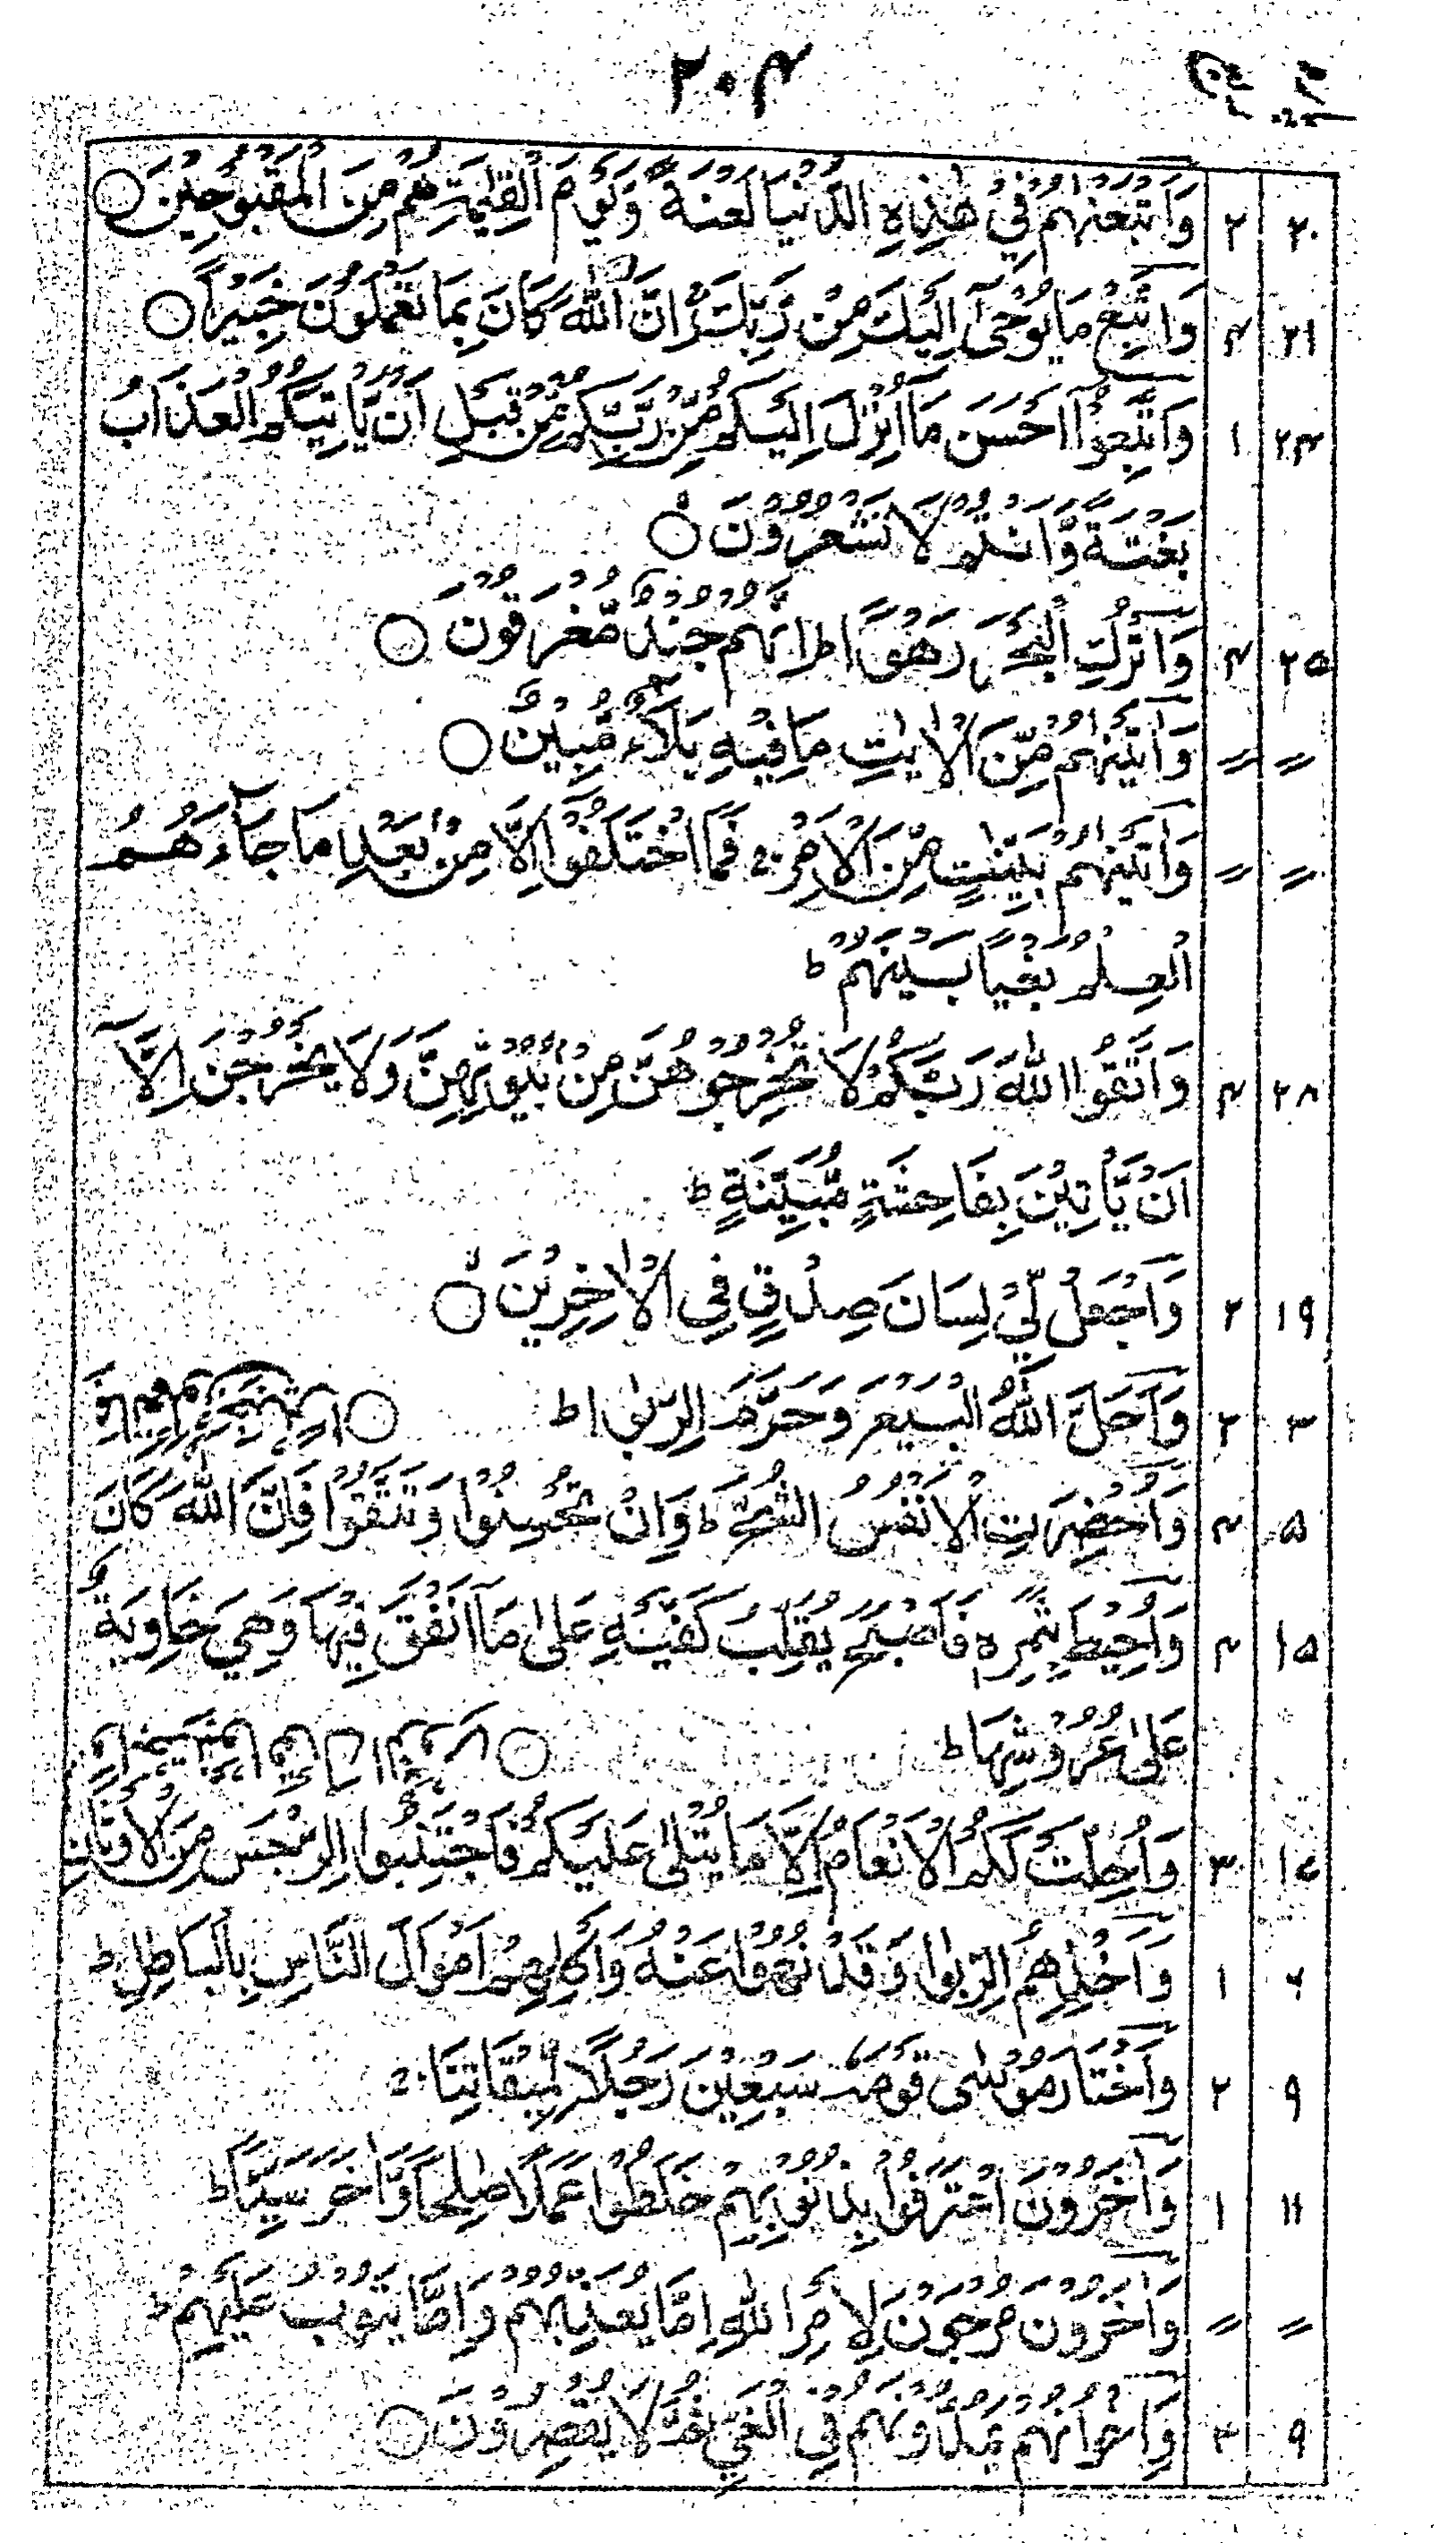 ۲۰۴
۲۰ ۲ وَاَتْبَعْنٰهُمْ فِيْ هٰذِهِ الدُّنْيَا لَعْنَةً ۚ وَيَوْمَ الْقِيٰمَةِ هُمْ مِّنَ الْمَقْبُوْحِيْنَ ○
۲۱ ۴ وَاتَّبِعْ مَا يُوْحٰٓى اِلَيْكَ مِنْ رَّبِّكَ ؕ اِنَّ اللّٰهَ كَانَ بِمَا تَعْمَلُوْنَ خَبِيْرًا ○
۲۴ ۱ وَاتَّبِعُوْٓا اَحْسَنَ مَآ اُنْزِلَ اِلَيْكُمْ مِّنْ رَّبِّكُمْ مِّنْ قَبْلِ اَنْ يَّاْتِيَكُمُ الْعَذَابُ
بَغْتَةً وَّاَنْتُمْ لَا تَشْعُرُوْنَ ○
۲۵ ۴ وَاتْرُكِ الْبَحْرَ رَهْوًا ؕ اِنَّهُمْ جُنْدٌ مُّغْرَقُوْنَ ○
〃 〃 وَاٰتَيْنٰهُمْ مِّنَ الْاٰيٰتِ مَا فِيْهِ بَلٰٓؤٌ مُّبِيْنٌ ○
〃 〃 وَاٰتَيْنٰهُمْ بَيِّنٰتٍ مِّنَ الْاَمْرِ ۚ فَمَا اخْتَلَفُوْٓا اِلَّا مِنْۢ بَعْدِ مَا جَآءَهُمُ
الْعِلْمُ بَغْيًۢا بَيْنَهُمْ ؕ
۲۸ ۴ وَاتَّقُوا اللّٰهَ رَبَّكُمْ لَا تُخْرِجُوْهُنَّ مِنْۢ بُيُوْتِهِنَّ وَلَا يَخْرُجْنَ اِلَّآ
اَنْ يَّاْتِيْنَ بِفَاحِشَةٍ مُّبَيِّنَةٍ ؕ
۱۹ ۲ وَاجْعَلْ لِّيْ لِسَانَ صِدْقٍ فِي الْاٰخِرِيْنَ ○
۳ ۲ وَاَحَلَّ اللّٰهُ الْبَيْعَ وَحَرَّمَ الرِّبٰوا ؕ ○
۵ ۴ وَاُحْضِرَتِ الْاَنْفُسُ الشُّحَّ ؕ وَاِنْ تُحْسِنُوْا وَتَتَّقُوْا فَاِنَّ اللّٰهَ كَانَ
۱۵ ۴ وَاُحِيْطَ بِثَمَرِهٖ فَاَصْبَحَ يُقَلِّبُ كَفَّيْهِ عَلٰى مَآ اَنْفَقَ فِيْهَا وَهِيَ خَاوِيَةٌ
عَلٰى عُرُوْشِهَا ؕ ○
۱۷ ۳ وَاُحِلَّتْ لَكُمُ الْاَنْعَامُ اِلَّا مَا يُتْلٰى عَلَيْكُمْ فَاجْتَنِبُوا الرِّجْسَ مِنَ الْاَوْثَانِ
۶ ۱ وَاَخْذِهِمُ الرِّبٰوا وَقَدْ نُهُوْا عَنْهُ وَاَكْلِهِمْ اَمْوَالَ النَّاسِ بِالْبَاطِلِ ؕ
۹ ۲ وَاخْتَارَ مُوْسٰى قَوْمَهٗ سَبْعِيْنَ رَجُلًا لِّمِيْقَاتِنَا ۚ
۱۱ ۱ وَاٰخَرُوْنَ اعْتَرَفُوْا بِذُنُوْبِهِمْ خَلَطُوْا عَمَلًا صَالِحًا وَّاٰخَرَ سَيِّئًا ؕ
〃 〃 وَاٰخَرُوْنَ مُرْجَوْنَ لِاَمْرِ اللّٰهِ اِمَّا يُعَذِّبُهُمْ وَاِمَّا يَتُوْبُ عَلَيْهِمْ ؕ
۹ وَاِخْوَانُهُمْ يَمُدُّوْنَهُمْ فِي الْغَيِّ ثُمَّ لَا يُقْصِرُوْنَ ○